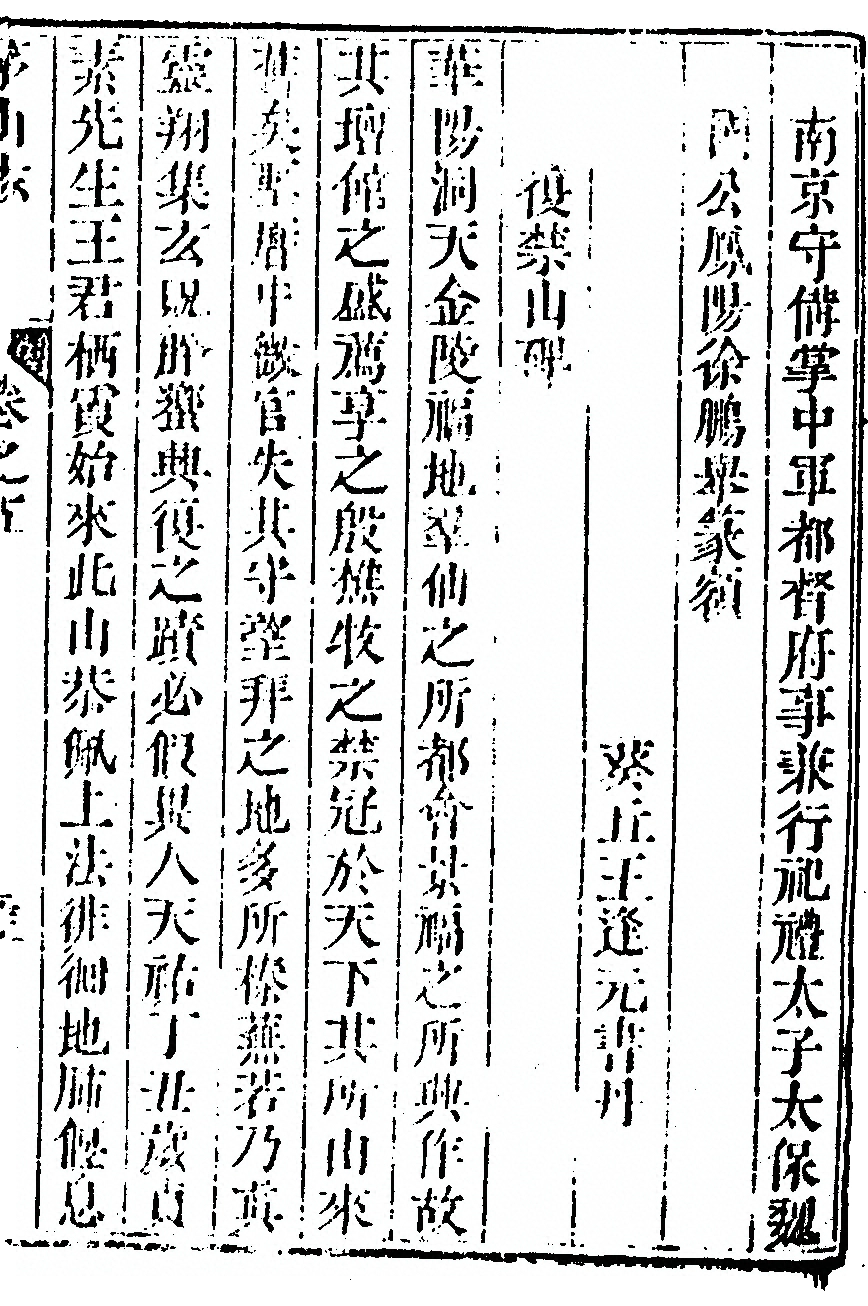 南京守備掌中軍都督府事兼行祀禮太子太保魏
國公鳳陽徐鵬舉篆額
葵丘王逢元書丹
復禁山碑
華陽洞天金陵福地羣仙之所都會景福之所興作故
其壇館之盛薦享之殷樵牧之禁冠於天下其所由來
舊矣聖曆中微官失其守望拜之地多所榛蕪若乃真
靈翔集玄貺肸蠁典復之蹟必假異人天祐丁丑歲貞
素先生王君栖霞始來此山恭佩上法徘徊地肺偃息
茅山志
卷之五